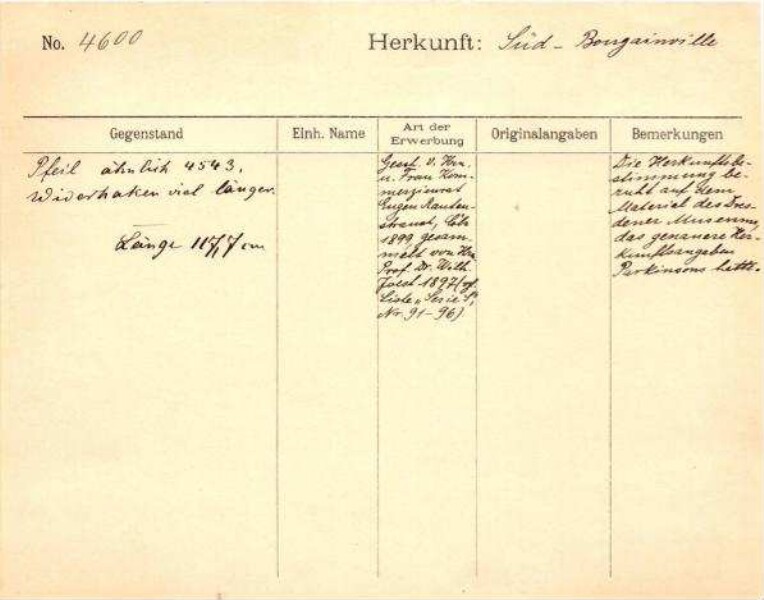 No. 4600
Herkunft: Süd - Bougainville
Gegenstand
Einh. Name
Art der
Erwerbung
Originalangaben
Bemerkungen
Pfeil ähnlich 4543,
Widerhaken viel länger.
Länge 117,7 cm
Gesch. v. Hrn.
u. Frau Kom-
merzienrat
Eugen Rauten-
strauch, Cöln
1899 gesam-
melt von Hrn.
Prof. Dr. Wilh.
Joest 1897 (cf.
Liste „Serie I",
Nr. 91-96).
Die Herkunftsbe-
stimmung be-
ruht auf dem
Material des Dres-
dener Museums,
das genauere Her-
kunftsangaben
Parkinsons hatte.